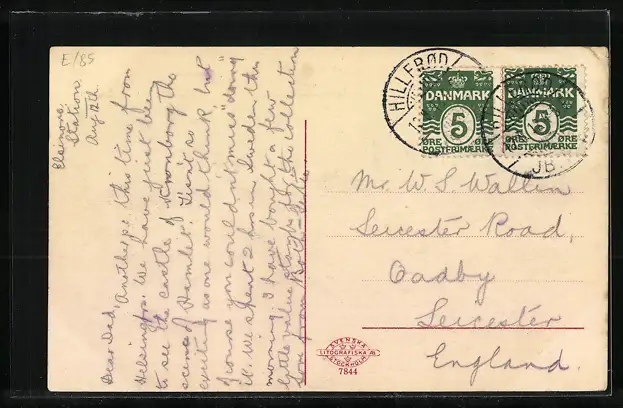 E/85
Elsinore
Station.
Aug 12th
Dear Dad,
Another this time from
Helsingfors. We have just been
to see the castle of Kronborg the
scene of Hamlet. Tisn't so
exciting as one would think but
of course you couldn't miss "doing"
it. We spent 2 hours in Sweden this
morning. I have bought a few
little value stamps for the collection
Love from Both
HILLERØD
DANMARK
5
ØRE
ØRE
POSTFRIMÆRKE
DANMARK
5
ØRE
ØRE
POSTFRIMÆRKE
JB
Mr. W S Wallin
Leicester Road,
Oadby
Leicester
England.
SVENSKA
LITOGRAFISKA AB
STOCKHOLM
7844